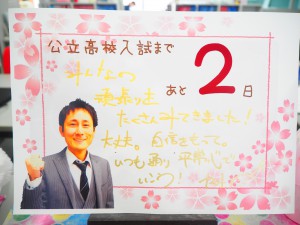 公立高校入試まで
あと 2 日
みんなの
頑張りを
たくさんみてきました！
大丈夫。自信をもって。
いつも通り平常心で
いこう！